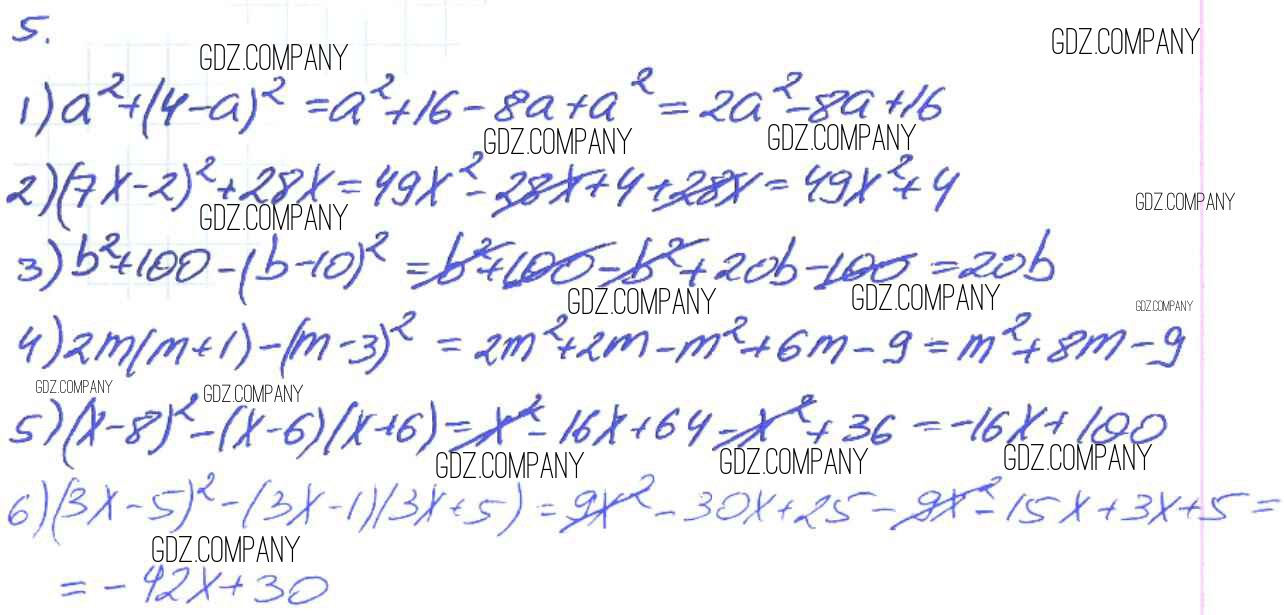 5.
GDZ.COMPANY GDZ.COMPANY
1) a²+(4-a)² = a²+16-8a+a² = 2a²-8a+16
GDZ.COMPANY GDZ.COMPANY
2) (7x-2)²+28x = 49x²-28x+4+28x = 49x²+4
GDZ.COMPANY GDZ.COMPANY
3) b²+100-(b-10)² = b²+100-b²+20b-100 = 20b
GDZ.COMPANY GDZ.COMPANY GDZ.COMPANY
4) 2m(m+1)-(m-3)² = 2m²+2m-m²+6m-9 = m²+8m-9
GDZ.COMPANY GDZ.COMPANY
5) (x-8)²-(x-6)(x+6) = x²-16x+64-x²+36 = -16x+100
GDZ.COMPANY GDZ.COMPANY GDZ.COMPANY
6) (3x-5)²-(3x-1)(3x+5) = 9x²-30x+25-9x²-15x+3x+5 =
GDZ.COMPANY
= -42x+30